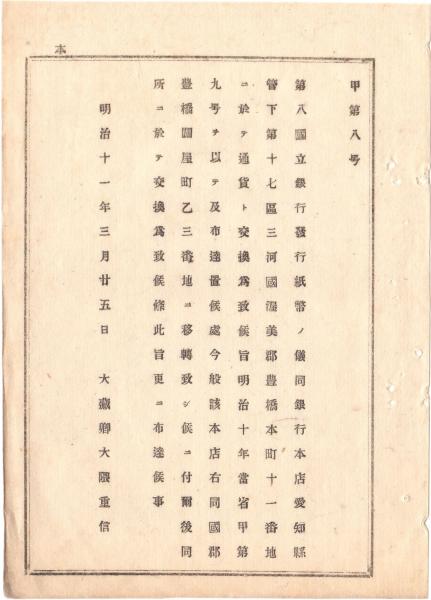 本
甲第八号
第八國立銀行發行紙幣ノ儀同銀行本店愛知縣
管下第十七區三河國渥美郡豊橋本町十一番地
ニ於テ通貨ト交換為致候旨明治十年當省甲第
九号ヲ以テ及布達置候處今般該本店右同國郡
豊橋關屋町乙三番地ニ移轉致シ候ニ付爾後同
所ニ於テ交換為致候條此旨更ニ布達候事
明治十一年三月廿五日 大藏卿大隈重信